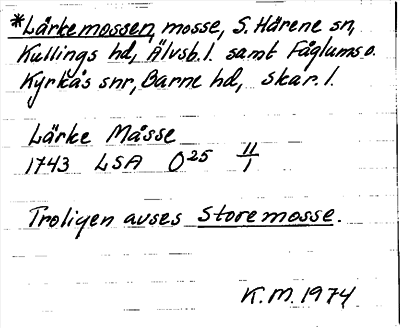 *Lärkemossen, mosse, S. Härene sn,
Kullings hd, Älvsb. l. samt Fåglums o.
Kyrkås snr, Barne hd, Skar. l.
Lärke Måsse
1743 LSA O25 11/1
Troligen avses Storemosse.
K.M. 1974